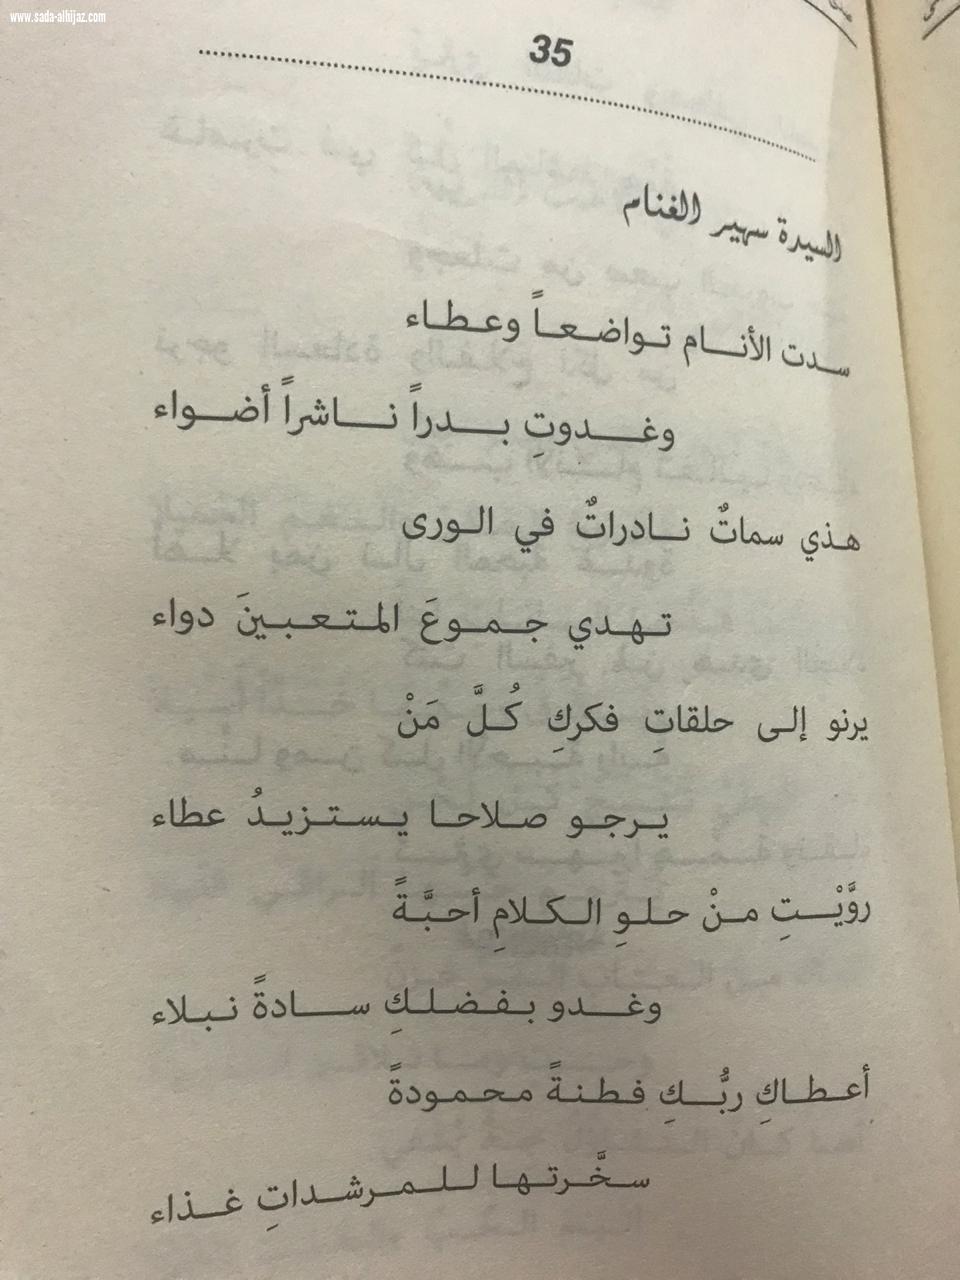 www.sada-alhijaz.com
35
السيدة سهير الغنام
سدت الأنام تواضعاً وعطاء
وغدوتِ بدراً ناشراً أضواء
هذي سماتٌ نادراتٌ في الورى
تهدي جموعَ المتعبينَ دواء
يرنو إلى حلقاتِ فكركِ كُلَّ مَنْ
يرجو صلاحا يستزيدُ عطاء
روَّيْتِ منْ حلوِ الكلامِ أحبَّةً
وغدو بفضلكِ سادةً نبلاء
أعطاكِ ربُّكِ فطنةً محمودةً
سخَّرتها للمرشداتِ غذاء